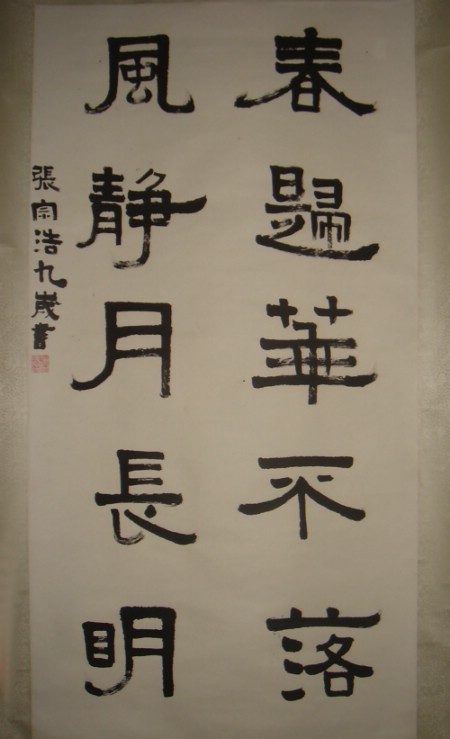 春歸華不落
風静月長明
張宗浩九歲書